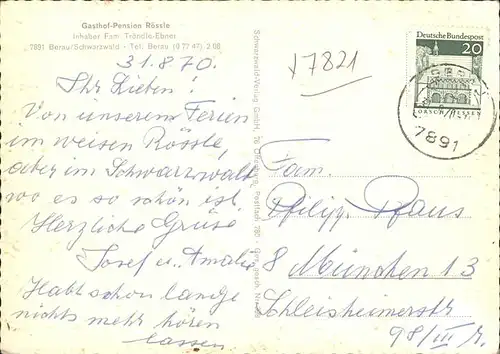 Gasthof-Pension Rössle
Inhaber Fam. Tröndle-Ebner
7891 Berau/Schwarzwald - Tel. Berau (0 77 47) 2 08
31.8.70.
Ihr Lieben!
Von unserem Ferien
im weisen Rössle,
aber im Schwarzwald
wo es so schön ist.
Herzliche Grüse
Josef u. Amalie
Habt schon lange
nichts mehr hören
lassen
Schwarzwald-Verlag GmbH, 76 Offenburg, Postfach
17821
Deutsche Bundespost
20
LORSCH/HESSEN
7891
Fam.
Philipp Pfaus
8 München 13
Schleisheimerstr
98/III r.